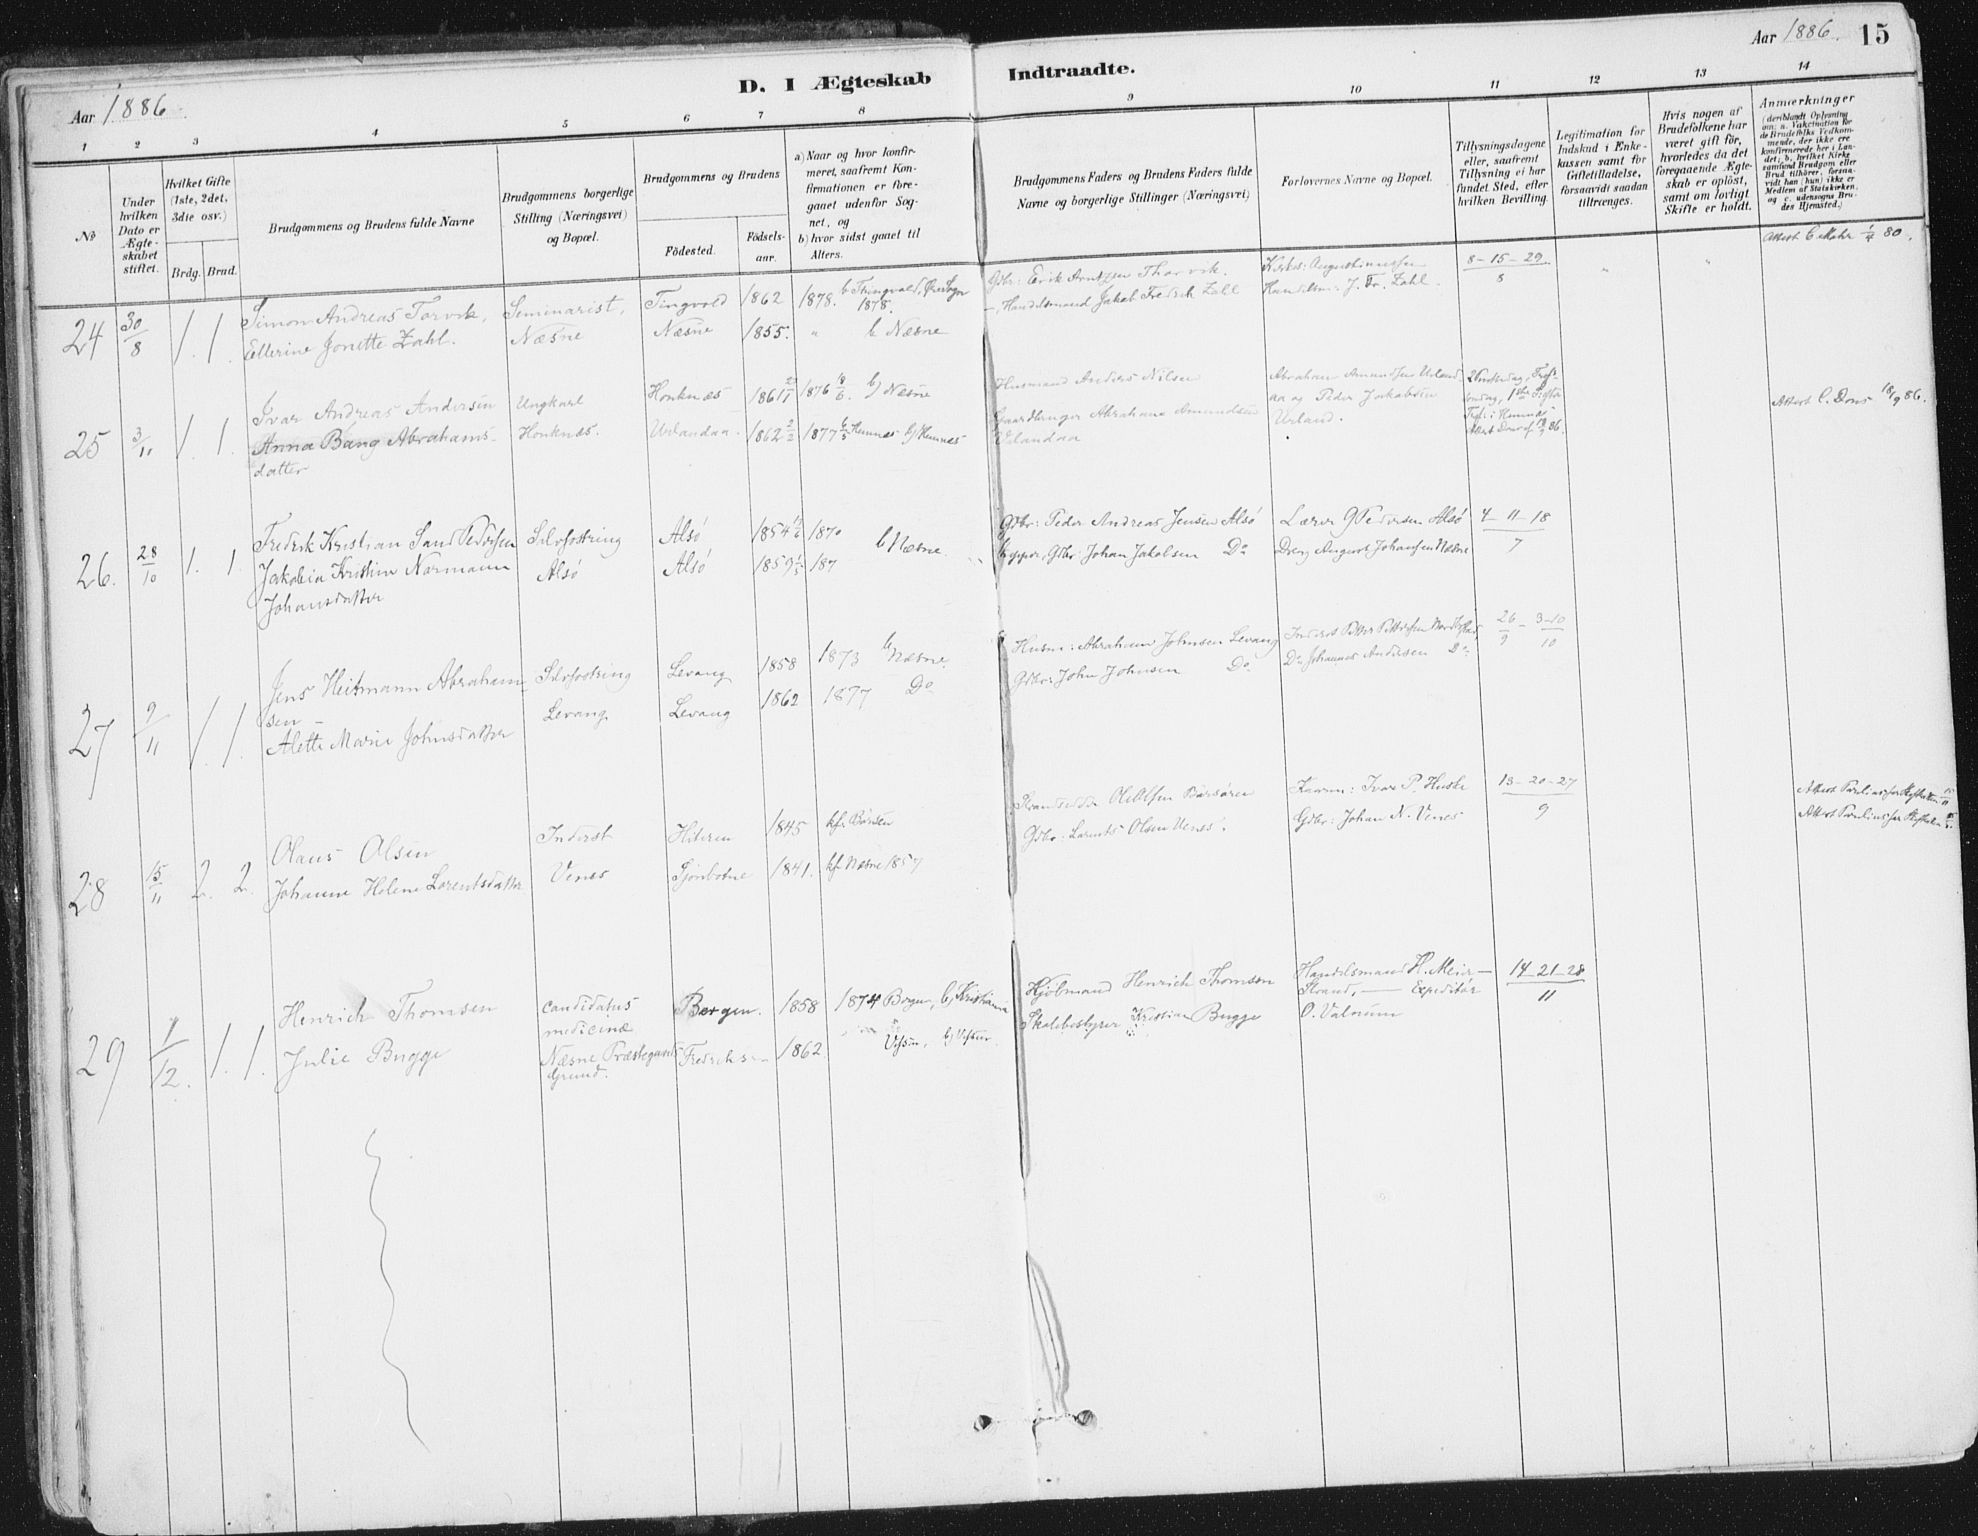 Aar 1886.
D. I Ægteskab Indtraadte.
Aar 1886. 15
1 2 3 4 5 6 7 8 9 10 11 12 13 14
No
Under hvilken Dato er Ægteskabet stiftet.
Hvilket Gifte (1ste, 2det, 3die osv.)
Brdg. Brud.
Brudgommens og Brudens fulde Navne
Brudgommens borgerlige Stilling (Næringsvei) og Bopæl.
Brudgommens og Brudens
Fødested. Fødselsaar.
a) Naar og hvor konfirmeret, saafremt Konfirmationen er foregaaet udenfor Sognet, og
b) hvor sidst gaaet til Alters.
Brudgommens Faders og Brudens Faders fulde Navne og borgerlige Stillinger (Næringsvei)
Forlovernes Navne og Bopæl.
Tillysningsdagene eller, saafremt Tillysning ei har fundet Sted, efter hvilken Bevilling.
Legitimation for Indskud i Enkekassen samt for Giftetilladelse, forsaavidt saadan tiltrænges.
Hvis nogen af Brudefolkene har været gift før, hvorledes da det foregaaende Ægteskab er opløst, samt om lovligt Skifte er holdt.
Anmærkninger (deriblandt Oplysning om: a. Vakcination for de Brudefolks Vedkommende, der ikke ere konfirmerede her i Landet; b. hvilket Kirkesamfund Brudgom eller Brud tilhører, forsaavidt han (hun) ikke er Medlem af Statskirken, og c. udensogns Brudes Hjemsted.)
24 30/8 1. 1. Simon Andreas Torvik, Seminarist, Tingvold 1862 1878. b Thingvold, Øre Sogn 1878. Gdbr: Erik Arntzen Thorvik. Kirkes: Augustinussen 8-15-29/8 " " Attest C Mohr 1/4 80.
Ellerine Jonette Zahl. Næsne Næsne 1855. " b Næsne —, Handelsmand Jakob Fredrik Zahl Handelsm: J. Fr. Zahl.
25 3/11 1. 1. Ivar Andreas Andersen Ungkarl Honknæs 1861 1876 b) Næsne Husmand Anders Nilsen Abraham Amundsen Urland- Attest C. Dons 18/9 86.
Anna Bang Abrahams- Honknæs. Urlandaa 1862 2/2 1877 6/5 Hemnes b) Hemnes Gaardbruger Abraham Amundsen aa og Peder Jakobsen
datter Urlandaa Urland.
26. 28/10 1. 1. Fredrik Kristian Sand Pedersen Selvfostring Alsø 1854 1870 b Næsne Gdbr: Peder Andreas Jensen Alsø Lærer G Pedersen Alsø 4-11-18/7
Jakobia Kristine Normann Alsø Alsø 1859 187 Skipper, Gdbr: Johan Jakobsen Do Dreng August Johansen Næsne
Johansdatter
27 9/11 1. 1. Jens Heitmann Abraham- Selvfostring Levang 1858 1873 b Næsne. Husm: Abraham Johnsen Levang Inderst Petter Pettersen 26/9 - 3-10/10
sen Levang Levang 1862 1877 Do Gdbr: John Johnsen Do Do Johannes Andersen Do
Alette Marie Johnsdatter
28 15/11 2. 2. Olaus Olsen Inderst Hiteren 1845 kfr Børsen Ole Olsen Børsøren Ivar P. Husbe 13-20-27/9
Johanne Helene Lorentsdatter Venes Sjonbotne 1841. kfr Næsne 1857 Gdbr: Lorents Olsen Venes. Gdbr: Johan N. Venes
29 1/12. 1. 1. Henrich Thomsen candidatus medicinæ Bergen. 1858 1874 Bergen, b) Kristiania Kjøbmand Henrich Thomsen Handelsmand H. Meier — 14-21-28/11
Julie Bugge Næsne Præstegaards Grund. Fredriks— 1862. Vefsen, b) Vefsen. Skolebestyrer Kristian Bugge Strand, — Expeditør
O. Valorum